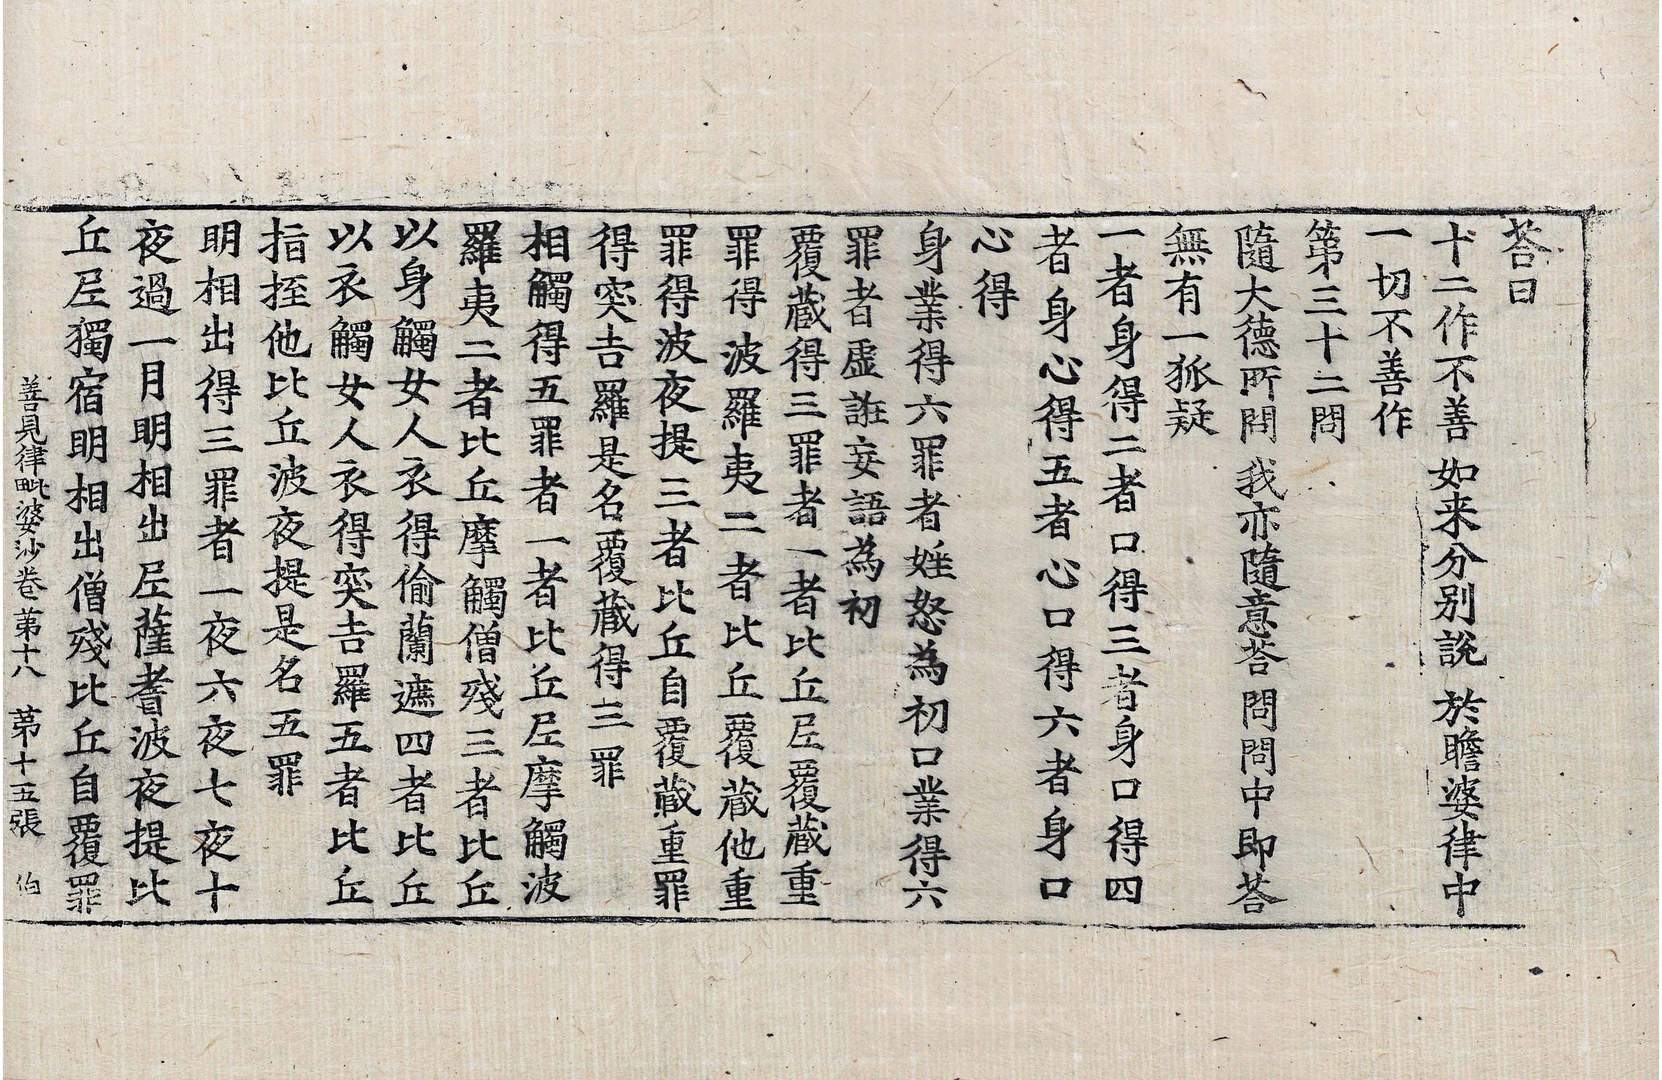 荅曰
十二作不善 如来分别說 於瞻婆律中
一切不善作
第三十二問
隨大德所問 我亦隨意荅 問問中即荅
無有一狐疑
一者身得二者口得三者身口得四
者身心得五者心口得六者身口
心得
身業得六罪者婬怒為初口業得六
罪者虛誑妄語為初
覆藏得三罪者一者比丘尼覆藏重
罪得波羅夷二者比丘覆藏他重
罪得波夜提三者比丘自覆藏重罪
得突吉羅是名覆藏得三罪
相觸得五罪者一者比丘尼摩觸波
羅夷二者比丘摩觸僧殘三者比丘
以身觸女人衣得偷蘭遮四者比丘
以衣觸女人衣得突吉羅五者比丘
指挃他比丘波夜提是名五罪
明相出得三罪者一夜六夜七夜十
夜過一月明相出尼薩耆波夜提比
丘尼獨宿明相出僧殘比丘自覆罪
善見律毗婆沙卷第十八 第十五張 伯